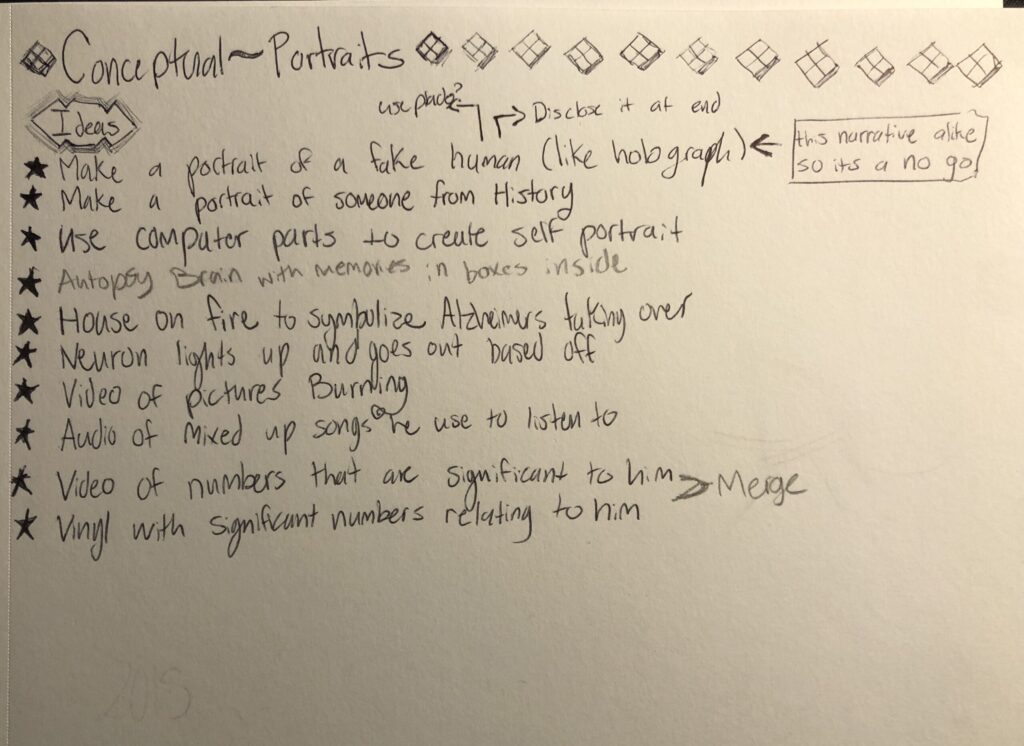 Conceptual~Portraits
Ideas
use
Disclose it at end
Make a portrait of a fake human (like holograph)
this narrative alike
so its a no go
Make a portrait of someone from History
Use computer parts to create self portrait
Autopsy Brain with memories in boxes inside
House on fire to symbolize Alzheimers taking over
Neuron lights up and goes out based off
Video of pictures Burning
Audio of mixed up songs he use to listen to
Video of numbers that are significant to him
Merge
Vinyl with significant numbers relating to him